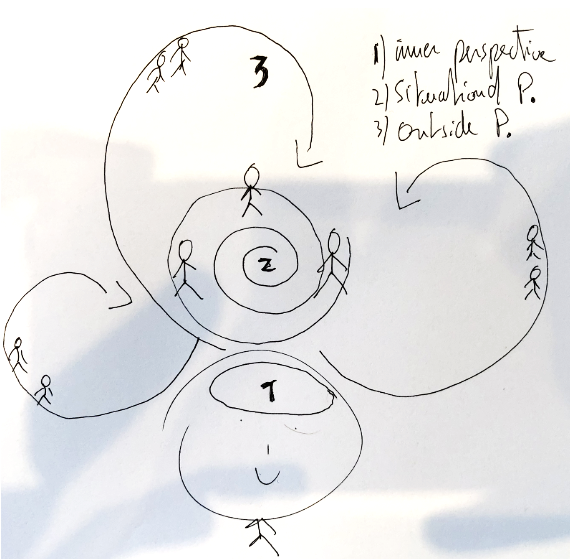 1) inner perspective
2) Situational P.
3) outside P.
3
2
1